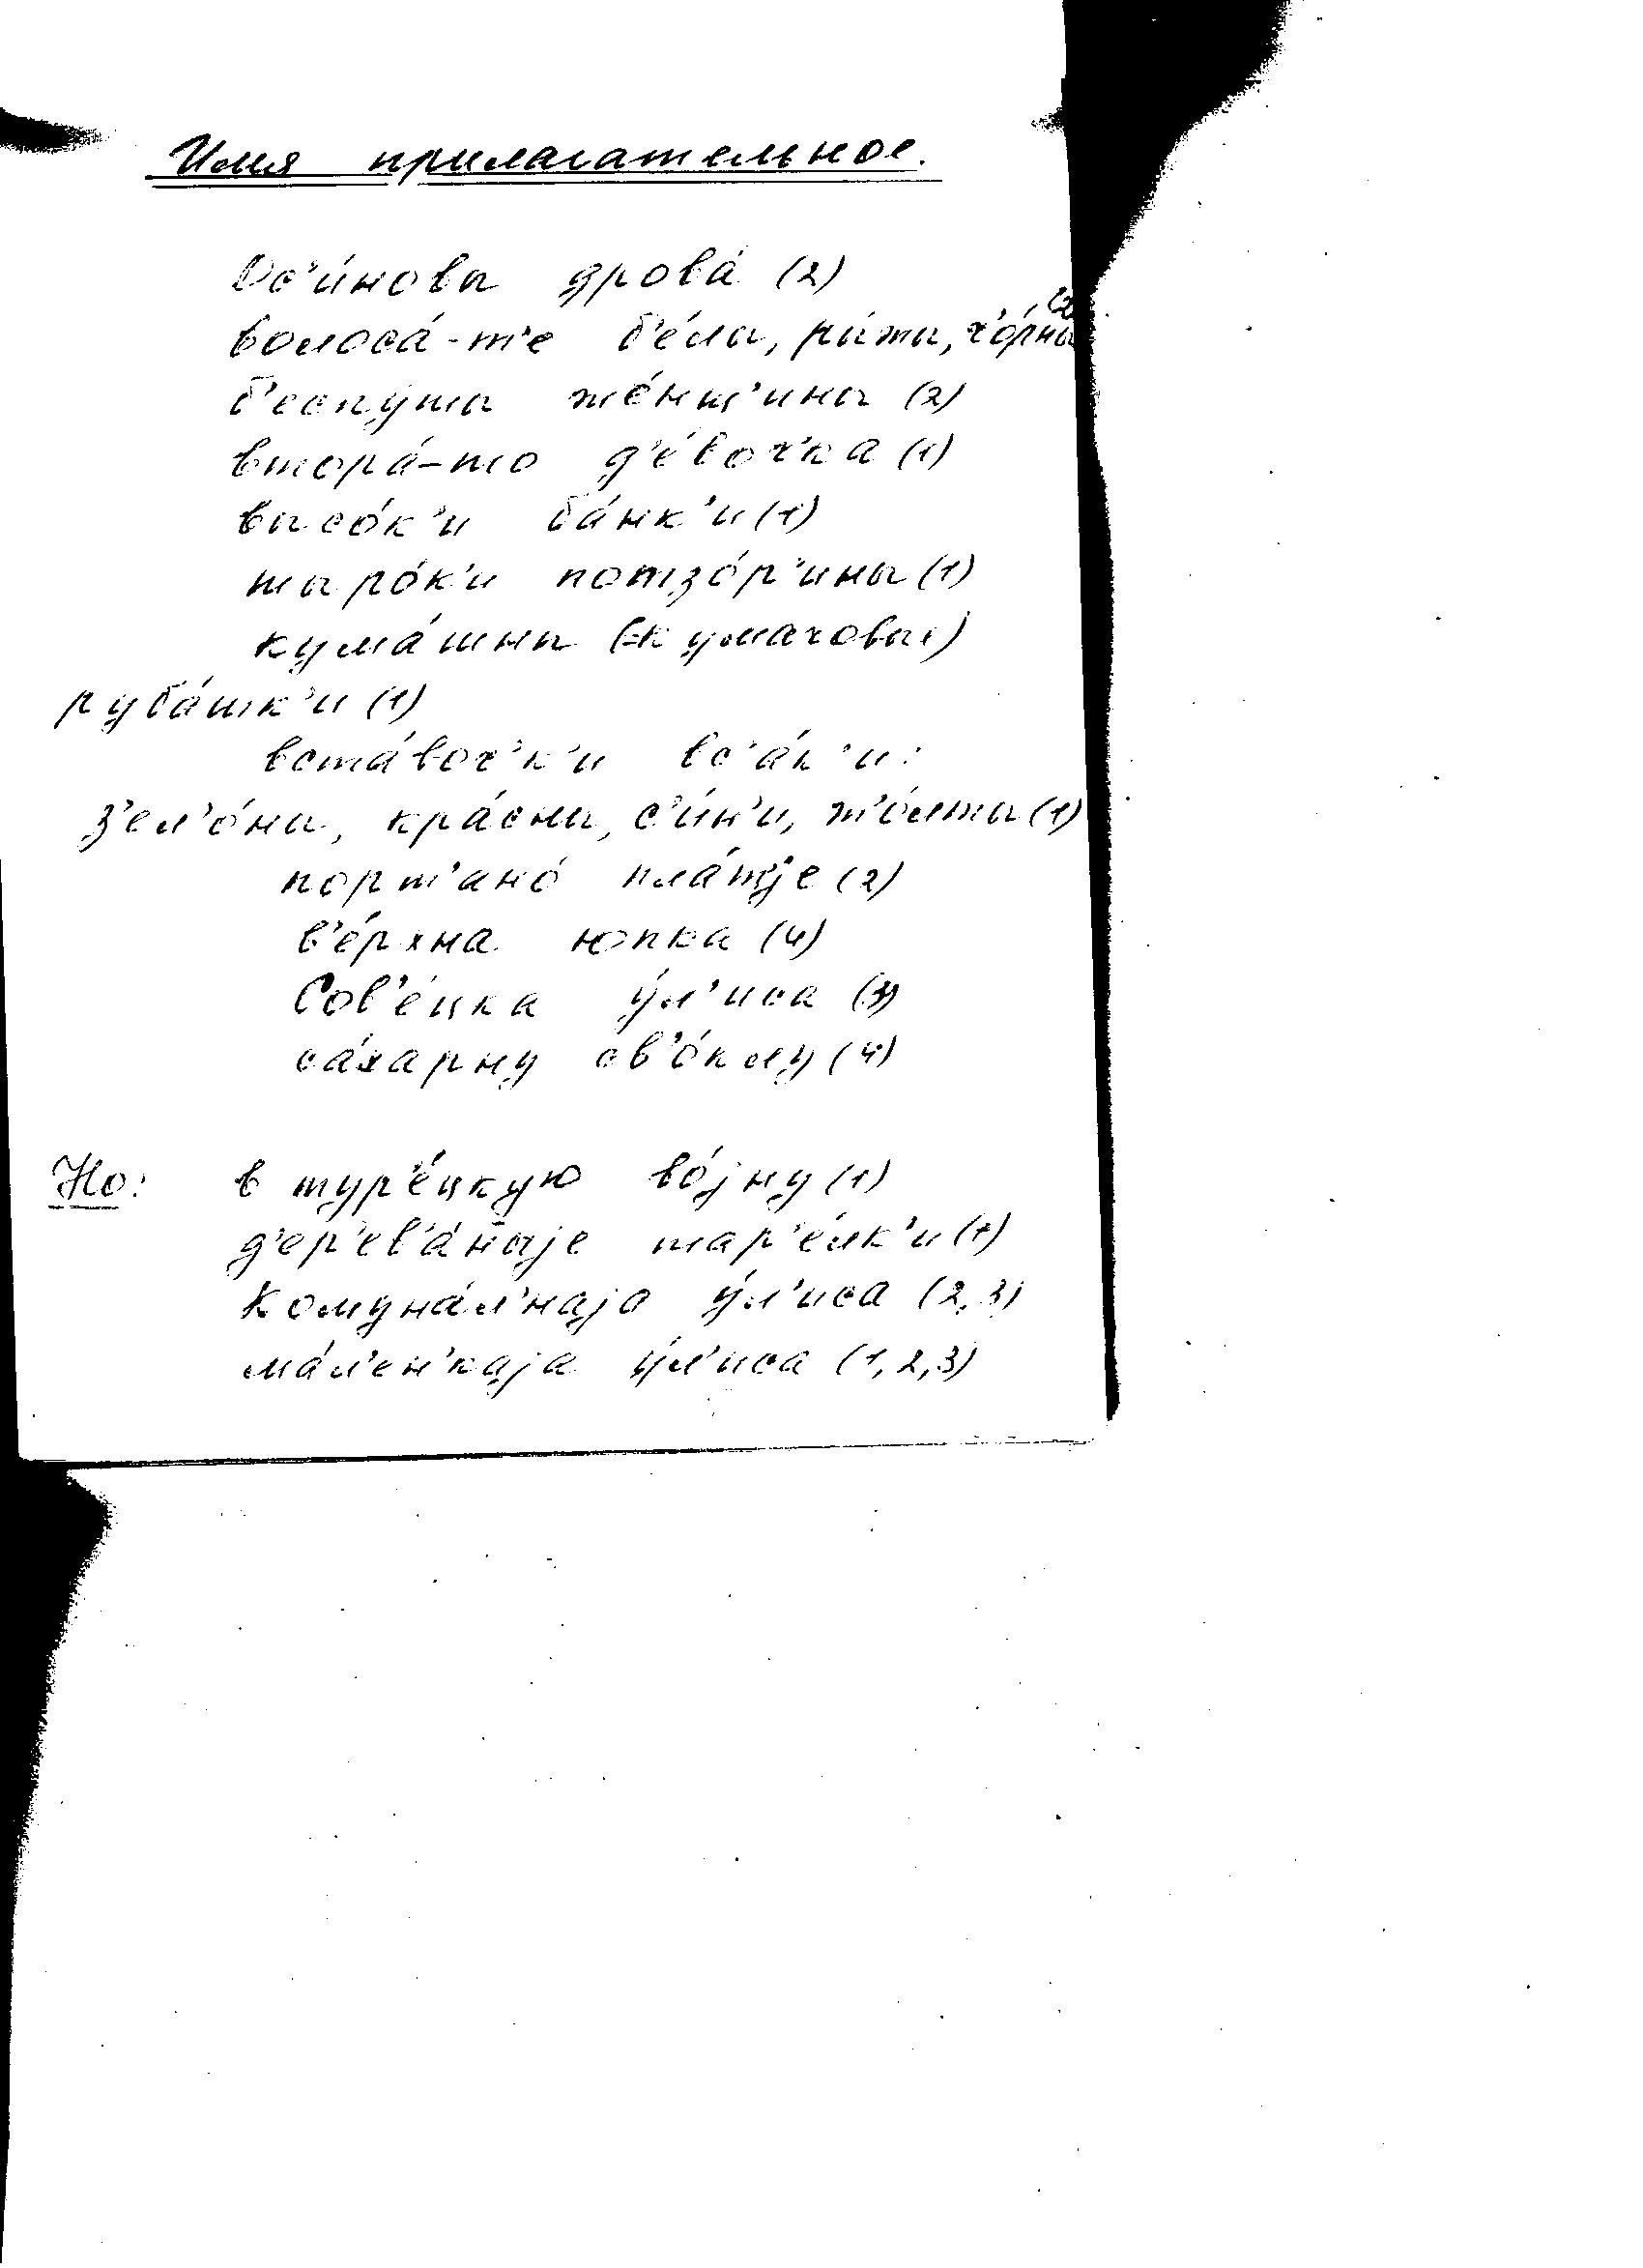 Имя прилагательное.
Ос'и́новы дрова́ (2)
волоса́-т'е б'е́лы, ры́жы, ч'о́рны (2)
б'еспу́ты же́нш'ины (2)
втора́-то д'е́воч'ка (1)
высо́к'и ба́нк'и (1)
шыро́к'и потзо́р'ины (1)
кума́шны (=кумачовые)
руба́шк'и (1)
вста́воч'к'и вс'а́к'и:
з'ел'о́ны, кра́сны, с'и́н'и, жо́лты (1)
порт'ано́ пла́т'jе (2)
в'е́рхна юпка (4)
Сов'е́цка у́л'иса (3)
са́харну св'о́клу (4)
Но: в тур'е́цкую во́jну (1)
д'ер'ев'а́ныjе тар'е́лк'и (1)
Комуна́л'наjа у́л'иса (2,3)
ма́л'ен'каjа у́л'иса (1,2,3)